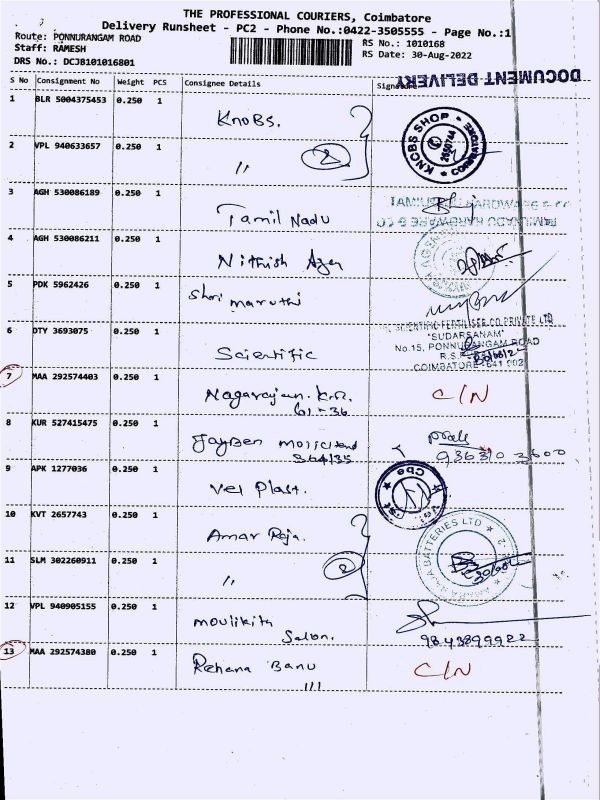 THE PROFESSIONAL COURIERS, Coimbatore
Delivery Runsheet - PC2 - Phone No.:0422-3505555 - Page No.:1
Route: PONNURANGAM ROAD
Staff: RAMESH
DRS No.: DCJB101016801
RS No.: 1010168
RS Date: 30-Aug-2022
DOCUMENT DELIVERY
S No Consignment No Weight PCS Consignee Details Signature
1 BLR 5004375453 0.250 1 KnoBs.
KNOBS SHOP
2550744
COIMBATORE
2 VPL 940633657 0.250 1 〃
2
3 AGH 530086189 0.250 1 Tamil Nadu
TAMILNADU HARDWARE & CO
TAMILNADU HARDWARE & CO
4 AGH 530086211 0.250 1 Nithish Agen
5 PDK 5962426 0.250 1 Shri maruthi
6 DTY 3693075 0.250 1 Scientific
SCIENTIFIC FERTILISER CO PRIVATE LTD
"SUDARSANAM"
No.15, PONNURANGAM ROAD
R.S.
COIMBATORE-641 002
7 MAA 292574403 0.250 1 Nagarajan. K.R. C/N
61-36
8 KUR 527415475 0.250 1
364135
9 APK 1277036 0.250 1 Vel Plast.
Cbe
10 KVT 2657743 0.250 1 Amar Raja.
AMARA RAJA BATTERIES LTD
11 SLM 302260911 0.250 1 〃
2
12 VPL 940905155 0.250 1 moulikith
Salon.
9843899922
13 MAA 292574380 0.250 1 Rehana Banu C/N